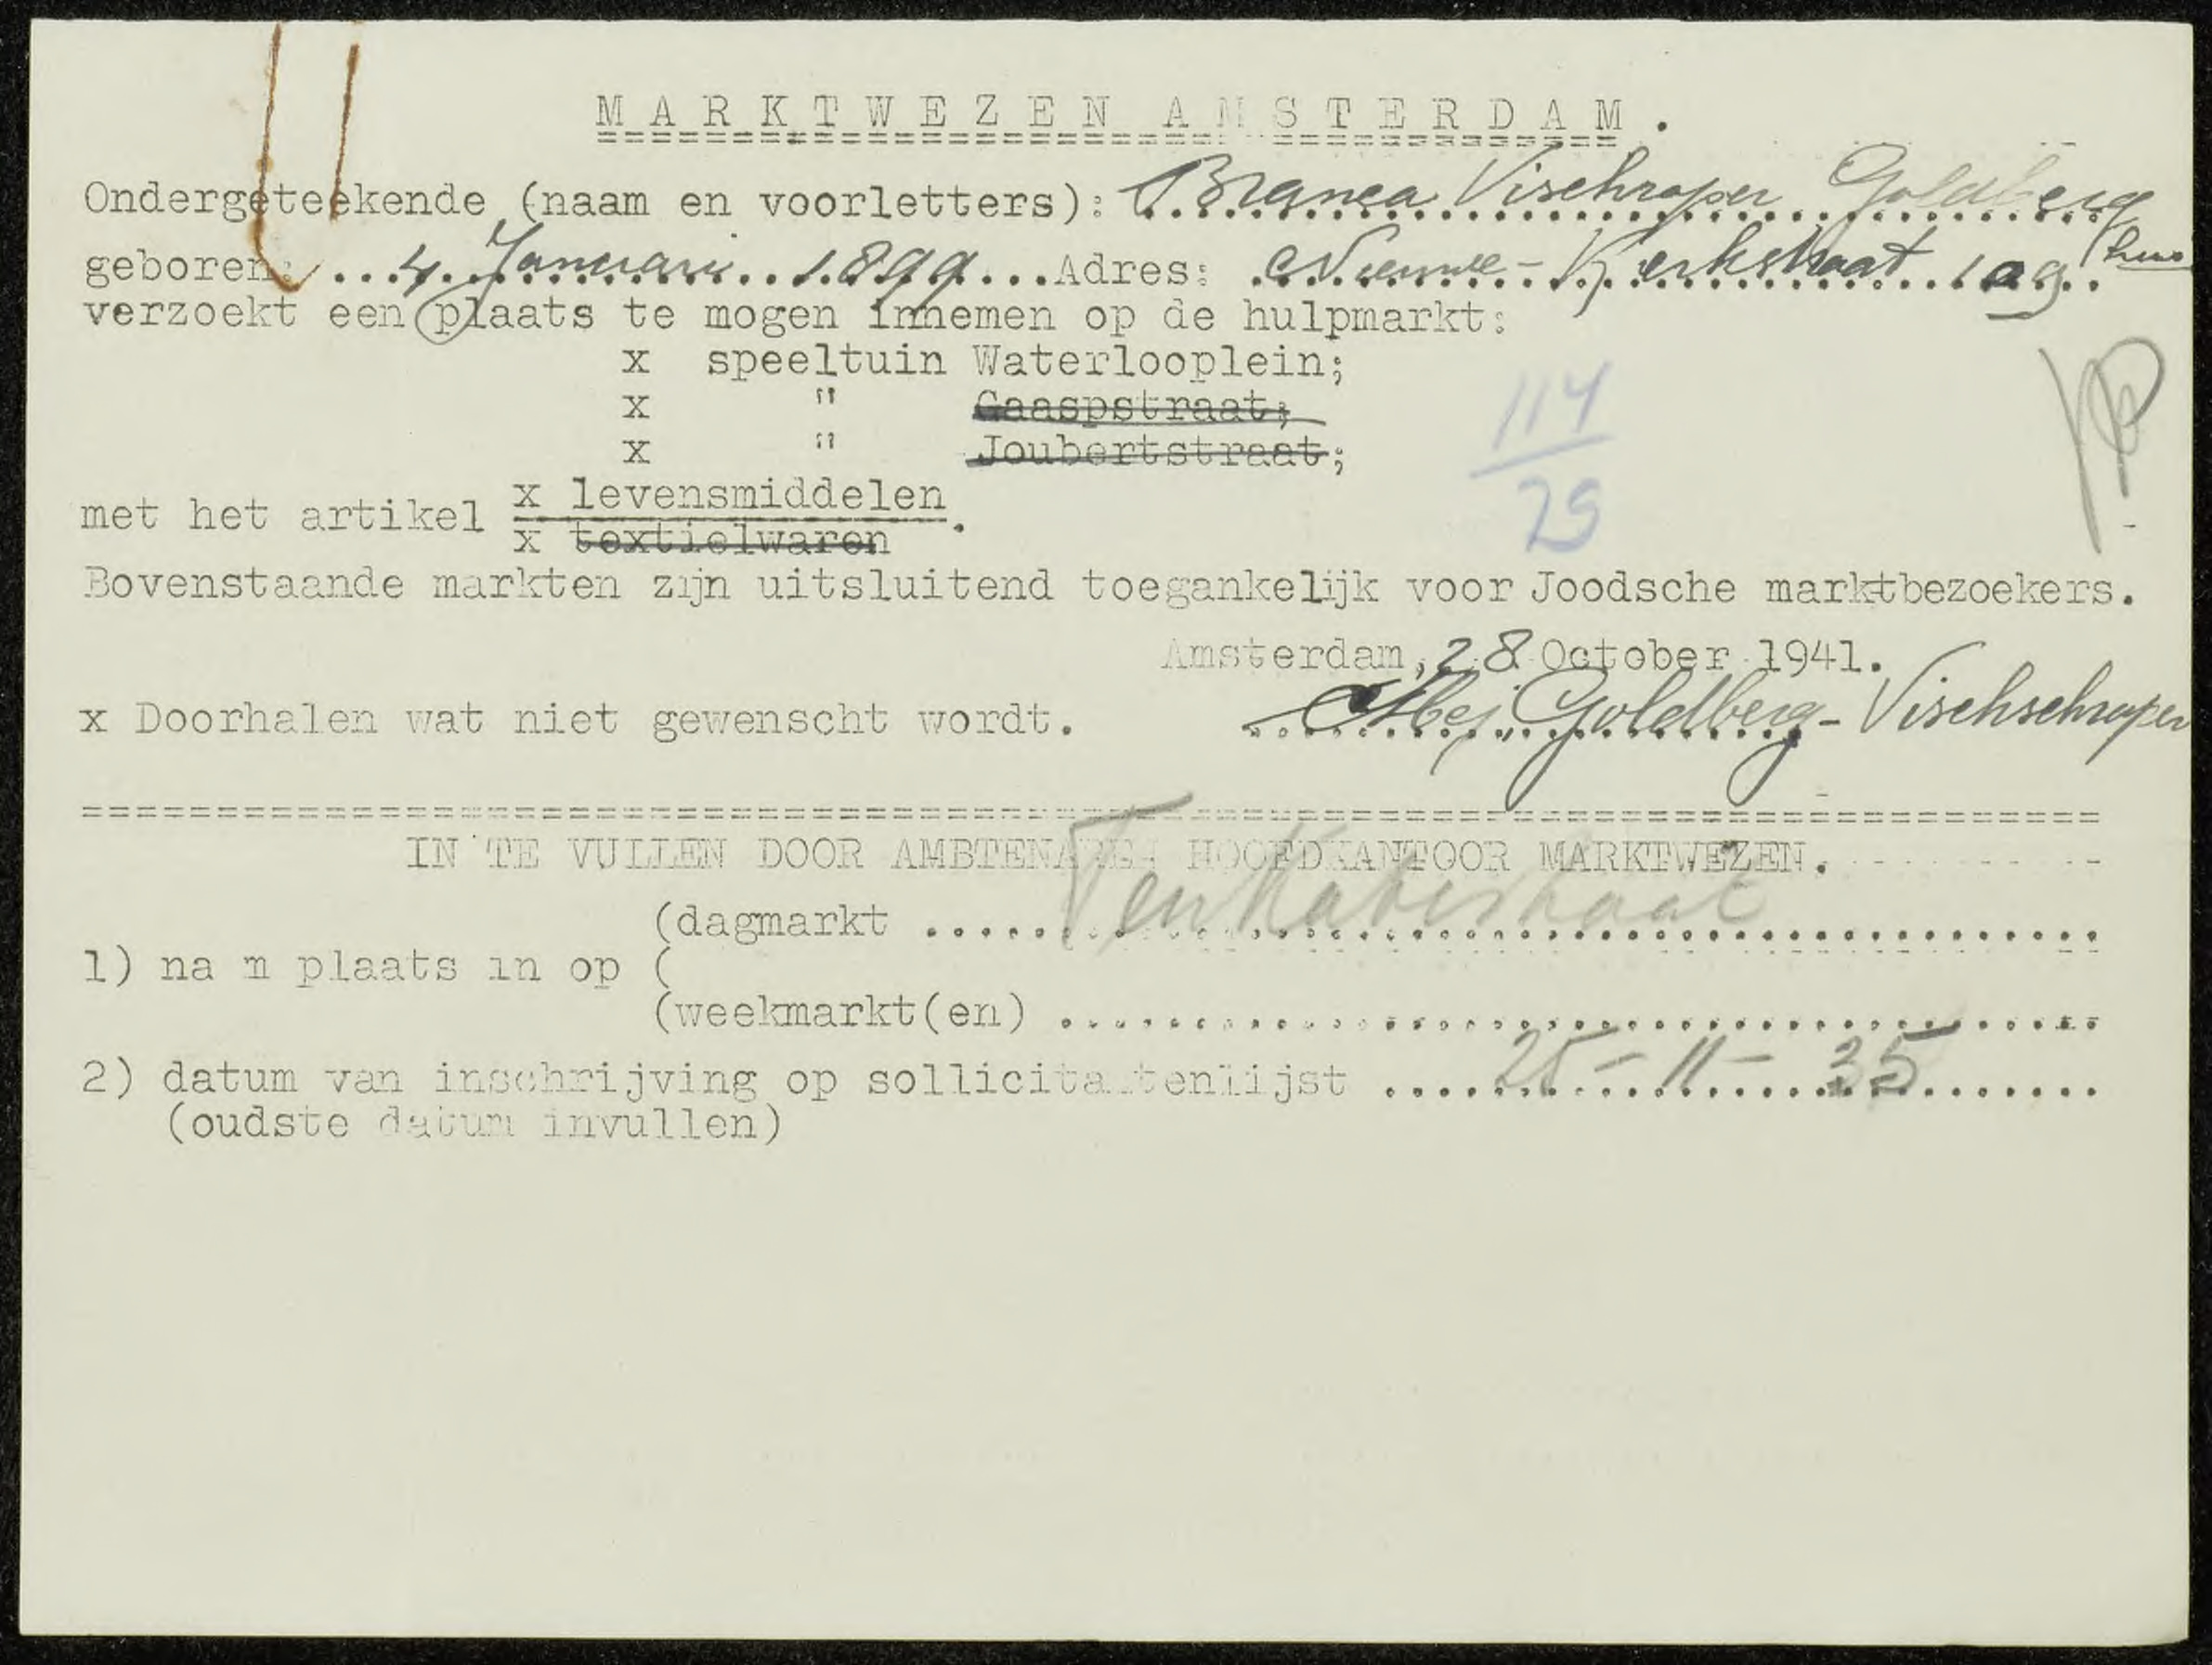 MARKTWEZEN AMSTERDAM.
Ondergeteekende (naam en voorletters): Branca Vischraper Goldberg
geboren: 4 Januari 1899 Adres: Nieuwe-Kerkstraat 109 huis
verzoekt een plaats te mogen innemen op de hulpmarkt:
x speeltuin Waterlooplein;
x " Gaaspstraat;
x " Joubertstraat;
114
29
met het artikel x levensmiddelen
x textielwaren.
Bovenstaande markten zijn uitsluitend toegankelijk voor Joodsche marktbezoekers.
Amsterdam, 28 October 1941.
x Doorhalen wat niet gewenscht wordt. Mej. Goldberg-Vischschraper
IN TE VULLEN DOOR AMBTENAREN HOOFDKANTOOR MARKTWEZEN.
(dagmarkt Ten Katestraat
1) na m plaats in op (
(weekmarkt(en)
2) datum van inschrijving op sollicitantenlijst 25-11-35
(oudste datum invullen)